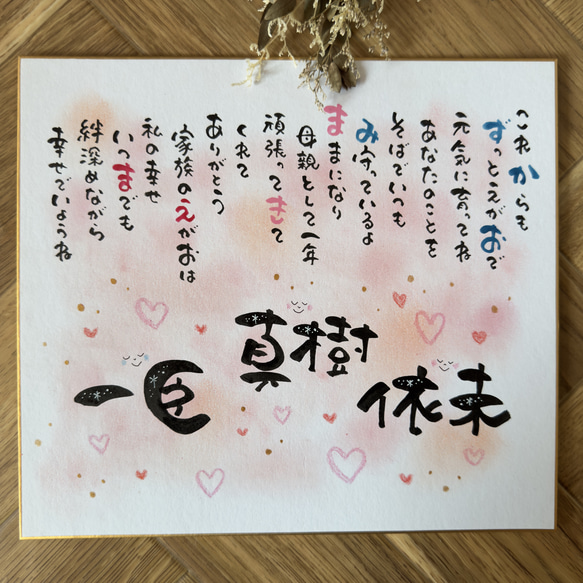 これからも
ずっとえがおで
元気に育ってね
あなたのことを
そばでいつも
みまもっているよ
ままになり
母親として一年
頑張ってきて
くれて
ありがとう
家族のえがおは
私の幸せ
いつまでも
絆深めながら
幸せでいようね
真樹
依未